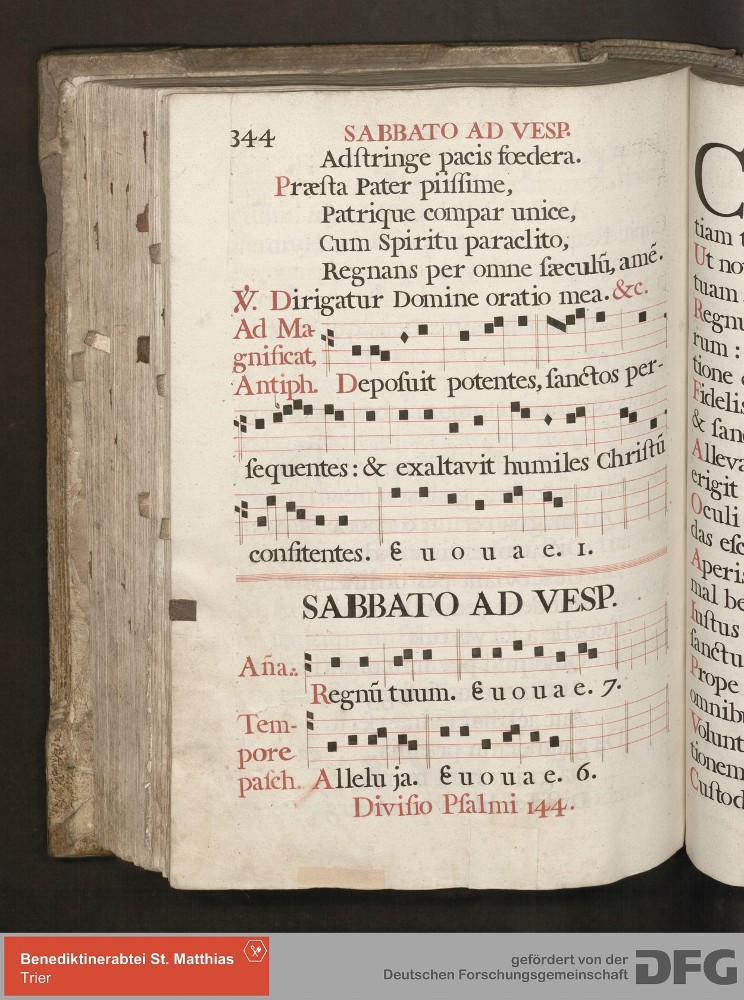 344 SABBATO AD VESP.
Adſtringe pacis fœdera.
Præſta Pater piiſſime,
Patrique compar unice,
Cum Spiritu paraclito,
Regnans per omne ſæculũ, amẽ.
℣. Dirigatur Domine oratio mea. &c.
Ad Ma-
gnificat,
Antiph. Depoſuit potentes, ſanctos per-
ſequentes: & exaltavit humiles Chriſtũ
confitentes. E u o u a e. 1.
SABBATO AD VESP.
Aña. Regnũ tuum. E u o u a e. 7.
Tem-
pore
paſch. Allelu ja. E u o u a e. 6.
Diviſio Pſalmi 144.
C
tiam
Ut no
tuam
Regnu
rum:
tione
Fidelis
& ſan
Alleva
erigit
Oculi
das eſc
Aperis
mal be
Iuſtus
ſanctu
Prope
omnib
Volunt
tionem
Cuſtod
Benediktinerabtei St. Matthias
Trier
gefördert von der
Deutschen Forschungsgemeinschaft
DFG